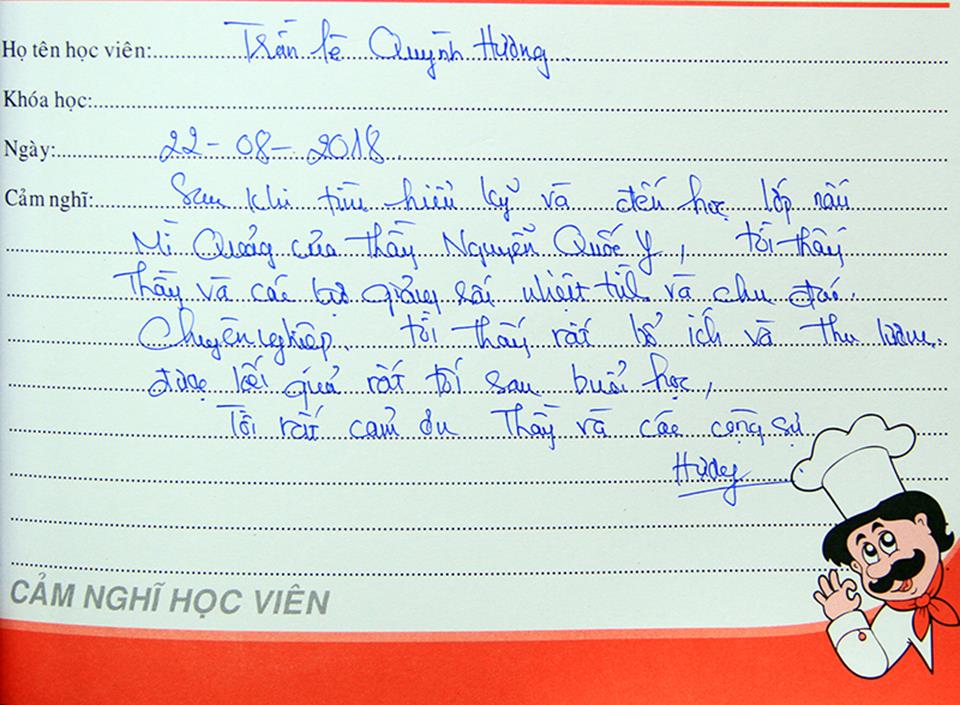 Họ tên học viên: Trần Lê Quỳnh Hương
Khóa học:
Ngày: 22-08-2018
Cảm nghĩ: Sau khi tìm hiểu kỹ và đến học lớp nấu
Mì Quảng của thầy Nguyễn Quốc Y, tôi thấy
Thầy và các giảng rất nhiệt tình và chu đáo.
Chuyên nghiệp. Tôi thấy rất bổ ích và thu lượm
được kết quả rất tốt sau buổi học,
Tôi rất cảm ơn Thầy và các cộng sự
Hương
CẢM NGHĨ HỌC VIÊN